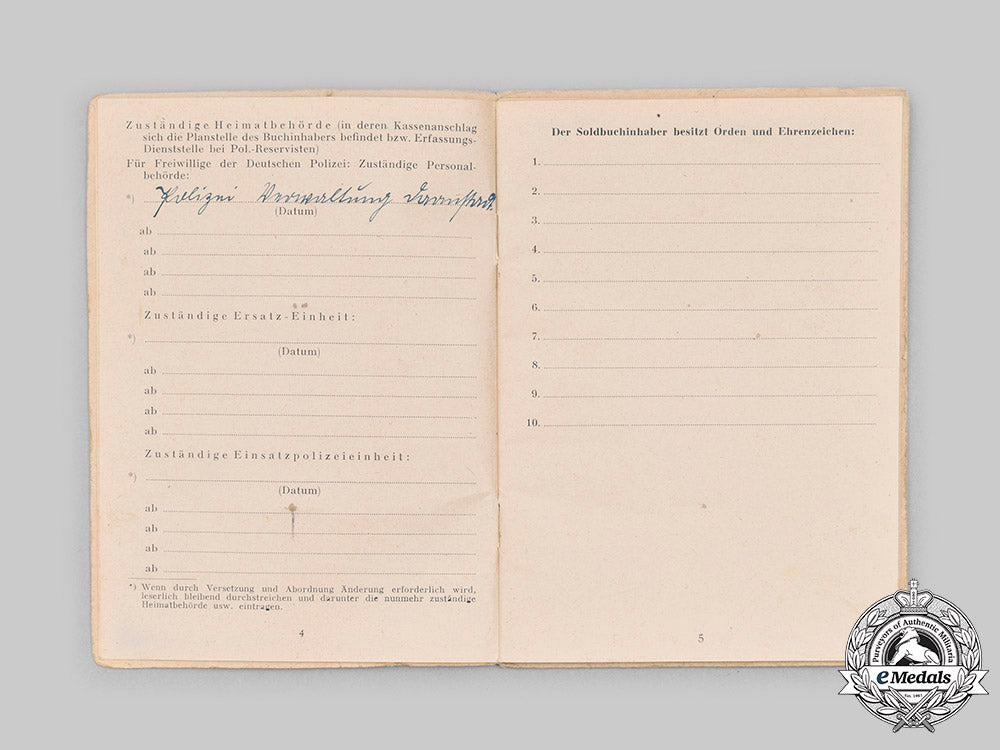 Zuständige Heimatbehörde (in deren Kassenanschlag
sich die Planstelle des Buchinhabers befindet bzw. Erfassungs-
Dienststelle bei Pol.-Reservisten)
Für Freiwillige der Deutschen Polizei: Zuständige Personal-
behörde:
*) Polizei Verwaltung Darmstadt.
(Datum)
ab
ab
ab
ab
Zuständige Ersatz-Einheit:
*)
(Datum)
ab
ab
ab
ab
Zuständige Einsatzpolizeieinheit:
*)
(Datum)
ab
ab
ab
ab
*) Wenn durch Versetzung und Abordnung Änderung erforderlich wird,
leserlich bleibend durchstreichen und darunter die nunmehr zuständige
Heimatbehörde usw. eintragen.
4
Der Soldbuchinhaber besitzt Orden und Ehrenzeichen:
1.
2.
3.
4.
5.
6.
7.
8.
9.
10.
5
Purveyors of Authentic Militaria
eMedals